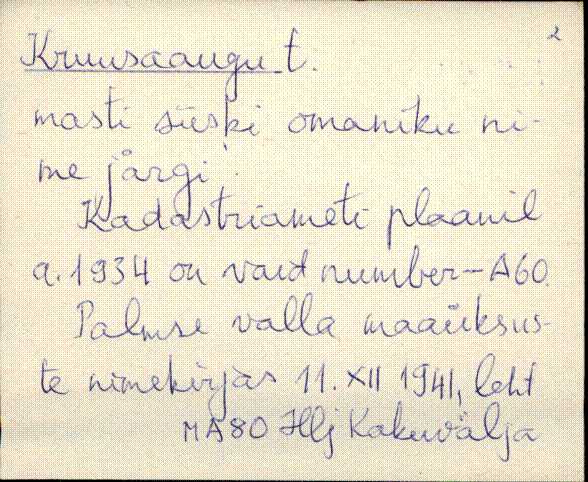 2
Kruusaaugu t.
masti siiski omaniku ni-
me järgi.
Kadastriameti plaanil
a. 1934 on vaid number - A60.
Palmse valla maaüksus-
te nimekirjas 11. XII 1941, leht
MA80 Hlj Kakuvälja